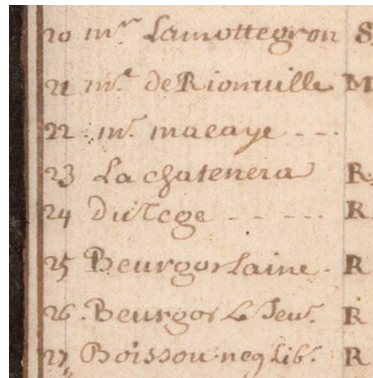 20 mr. Lamottegron S
21 mr. de Rionville M
22 mr. macaye - - -
23 La chatenera R
24 - - - - R
25 Beurgos Laine. R
26 Beurgos Le Jeu.e R
27 Boisson neg lib. R